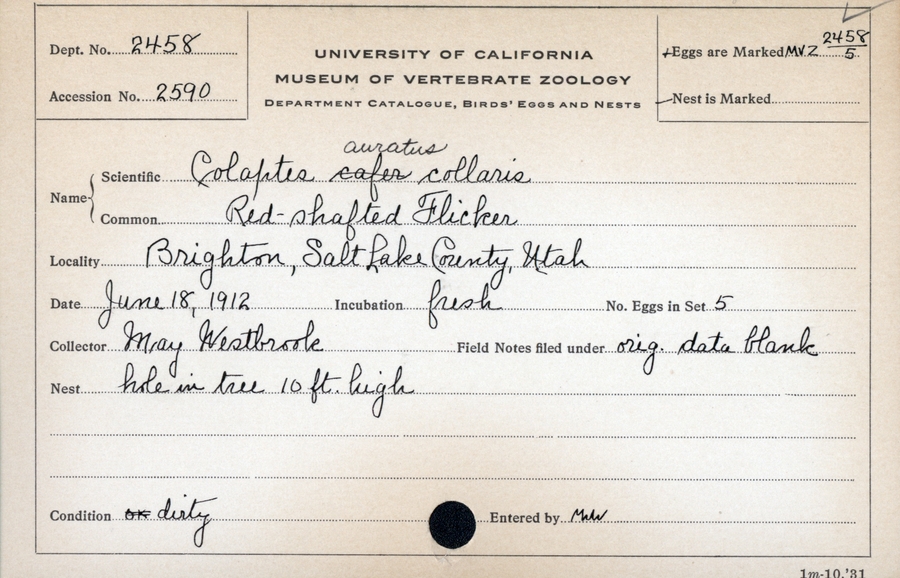 Dept. No. 2458
Accession No. 2590
UNIVERSITY OF CALIFORNIA
MUSEUM OF VERTEBRATE ZOOLOGY
DEPARTMENT CATALOGUE, BIRDS' EGGS AND NESTS
Eggs are Marked MVZ 2458/5
Nest is Marked
auratus
Name Scientific Colaptes cafer collaris
Common Red-shafted Flicker
Locality Brighton, Salt Lake County, Utah
Date June 18, 1912 Incubation fresh No. Eggs in Set 5
Collector May Westbrook Field Notes filed under orig. data blank
Nest hole in tree 10 ft. high
Condition ok dirty Entered by
1m-10,'31